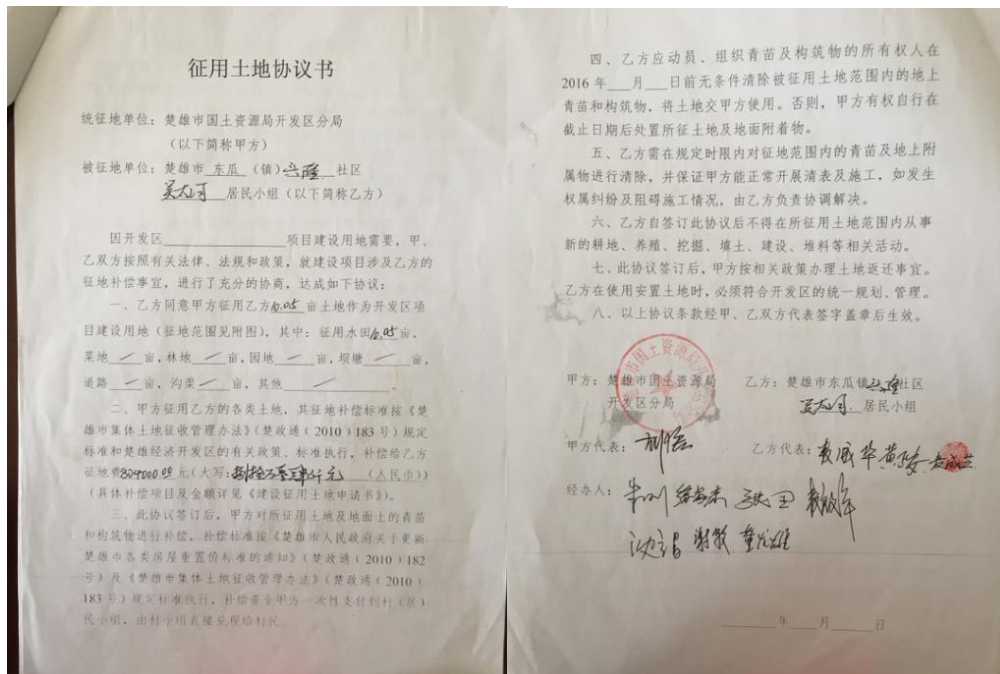 征用土地协议书
统征地单位：楚雄市国土资源局开发区分局
（以下简称甲方）
被征地单位：楚雄市 东瓜 （镇）兴隆 社区
吴太河 居民小组（以下简称乙方）
因开发区____________项目建设用地需要，甲、
乙双方按照有关法律、法规和政策，就建设项目涉及乙方的
征地补偿事宜，进行了充分的协商，达成如下协议：
一、乙方同意甲方征用乙方 亩土地作为开发区项
目建设用地（征地范围见附图），其中：征用水田 亩，
菜地 / 亩，林地 / 亩，园地 / 亩，坝塘 / 亩，
道路 / 亩，沟渠 / 亩，其他 /
二、甲方征用乙方的各类土地，其征地补偿标准按《楚
雄市集体土地征收管理办法》（楚政通﹝2010﹞183号）规定
标准和楚雄经济开发区的有关政策、标准执行，补偿给乙方
征地费804000.00元（大写： （人民币））
（具体补偿项目及金额详见《建设征用土地申请书》）。
三、此协议签订后，甲方对所征用土地及地面上的青苗
和构筑物进行补偿，补偿标准按《楚雄市人民政府关于更新
楚雄市各类房屋重置价标准的通知》（楚政通﹝2010﹞182
号）及《楚雄市集体土地征收管理办法》（楚政通﹝2010﹞
183号）规定标准执行，补偿资金甲方一次性支付到村（居）
民小组，由村小组直接兑现给村民。
四、乙方应动员、组织青苗及构筑物的所有权人在
2016年___月___日前无条件清除被征用土地范围内的地上
青苗和构筑物，将土地交甲方使用。否则，甲方有权自行在
截止日期后处置所征土地及地面附着物。
五、乙方需在规定时限内对征地范围内的青苗及地上附
属物进行清除，并保证甲方能正常开展清表及施工，如发生
权属纠纷及阻碍施工情况，由乙方负责协调解决。
六、乙方自签订此协议后不得在所征用土地范围内从事
新的耕地、养殖、挖掘、填土、建设、堆料等相关活动。
七、此协议签订后，甲方按相关政策办理土地返还事宜。
乙方在使用安置土地时，必须符合开发区的统一规划、管理。
八、以上协议条款经甲、乙双方代表签字盖章后生效。
甲方：楚雄市国土资源局 乙方：楚雄市东瓜镇兴隆社区
开发区分局 吴太河 居民小组
甲方代表： 乙方代表：
经办人：
______年____月____日